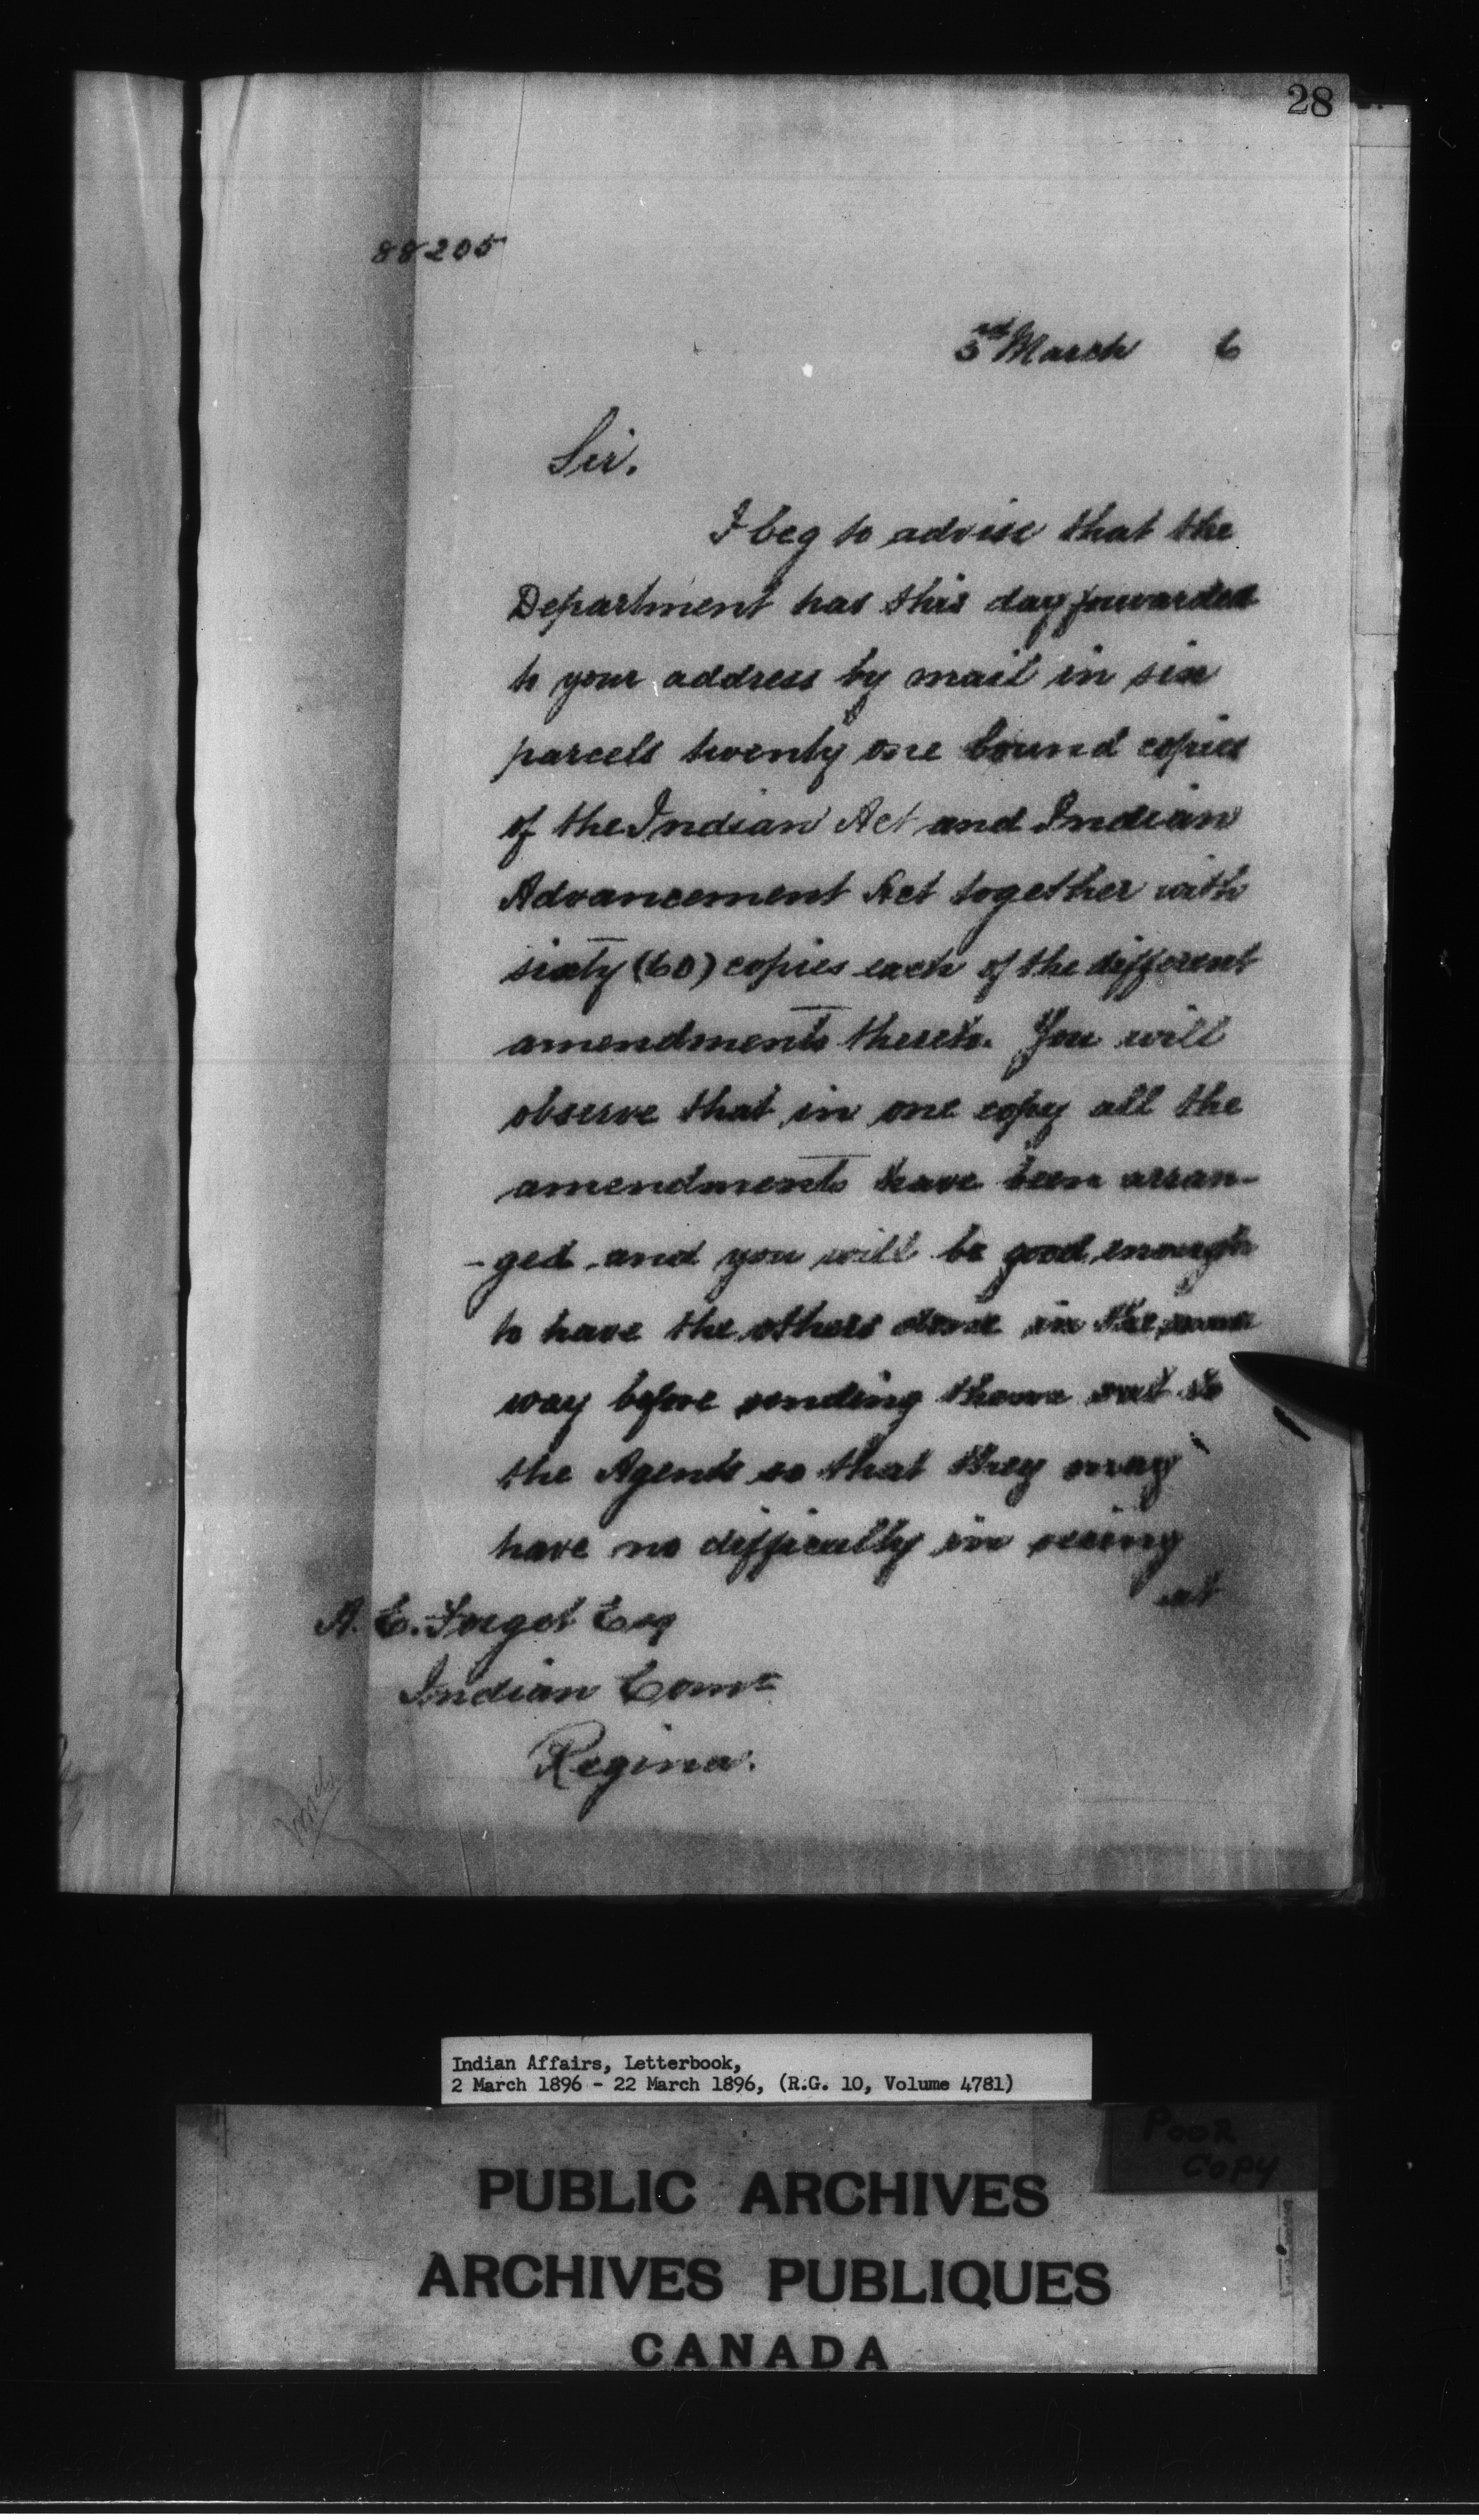 28
88205
3rd March 6
Sir,
I beg to advise that the
Department has this day forwarded
to your address by mail in six
parcels twenty one bound copies
of the Indian Act and Indian
Advancement Act together with
sixty (60) copies each of the different
amendments thereto. You will
observe that in one copy all the
amendments have been arran-
-ged and you will be good enough
to have the others done in the same
way before sending them out to
the Agents so that they may
have no difficulty in seeing
at
A. E. Forget Esq
Indian Comr
Regina.
Indian Affairs, Letterbook,
2 March 1896 - 22 March 1896, (R.G. 10, Volume 4781)
POOR
COPY
PUBLIC ARCHIVES
ARCHIVES PUBLIQUES
CANADA